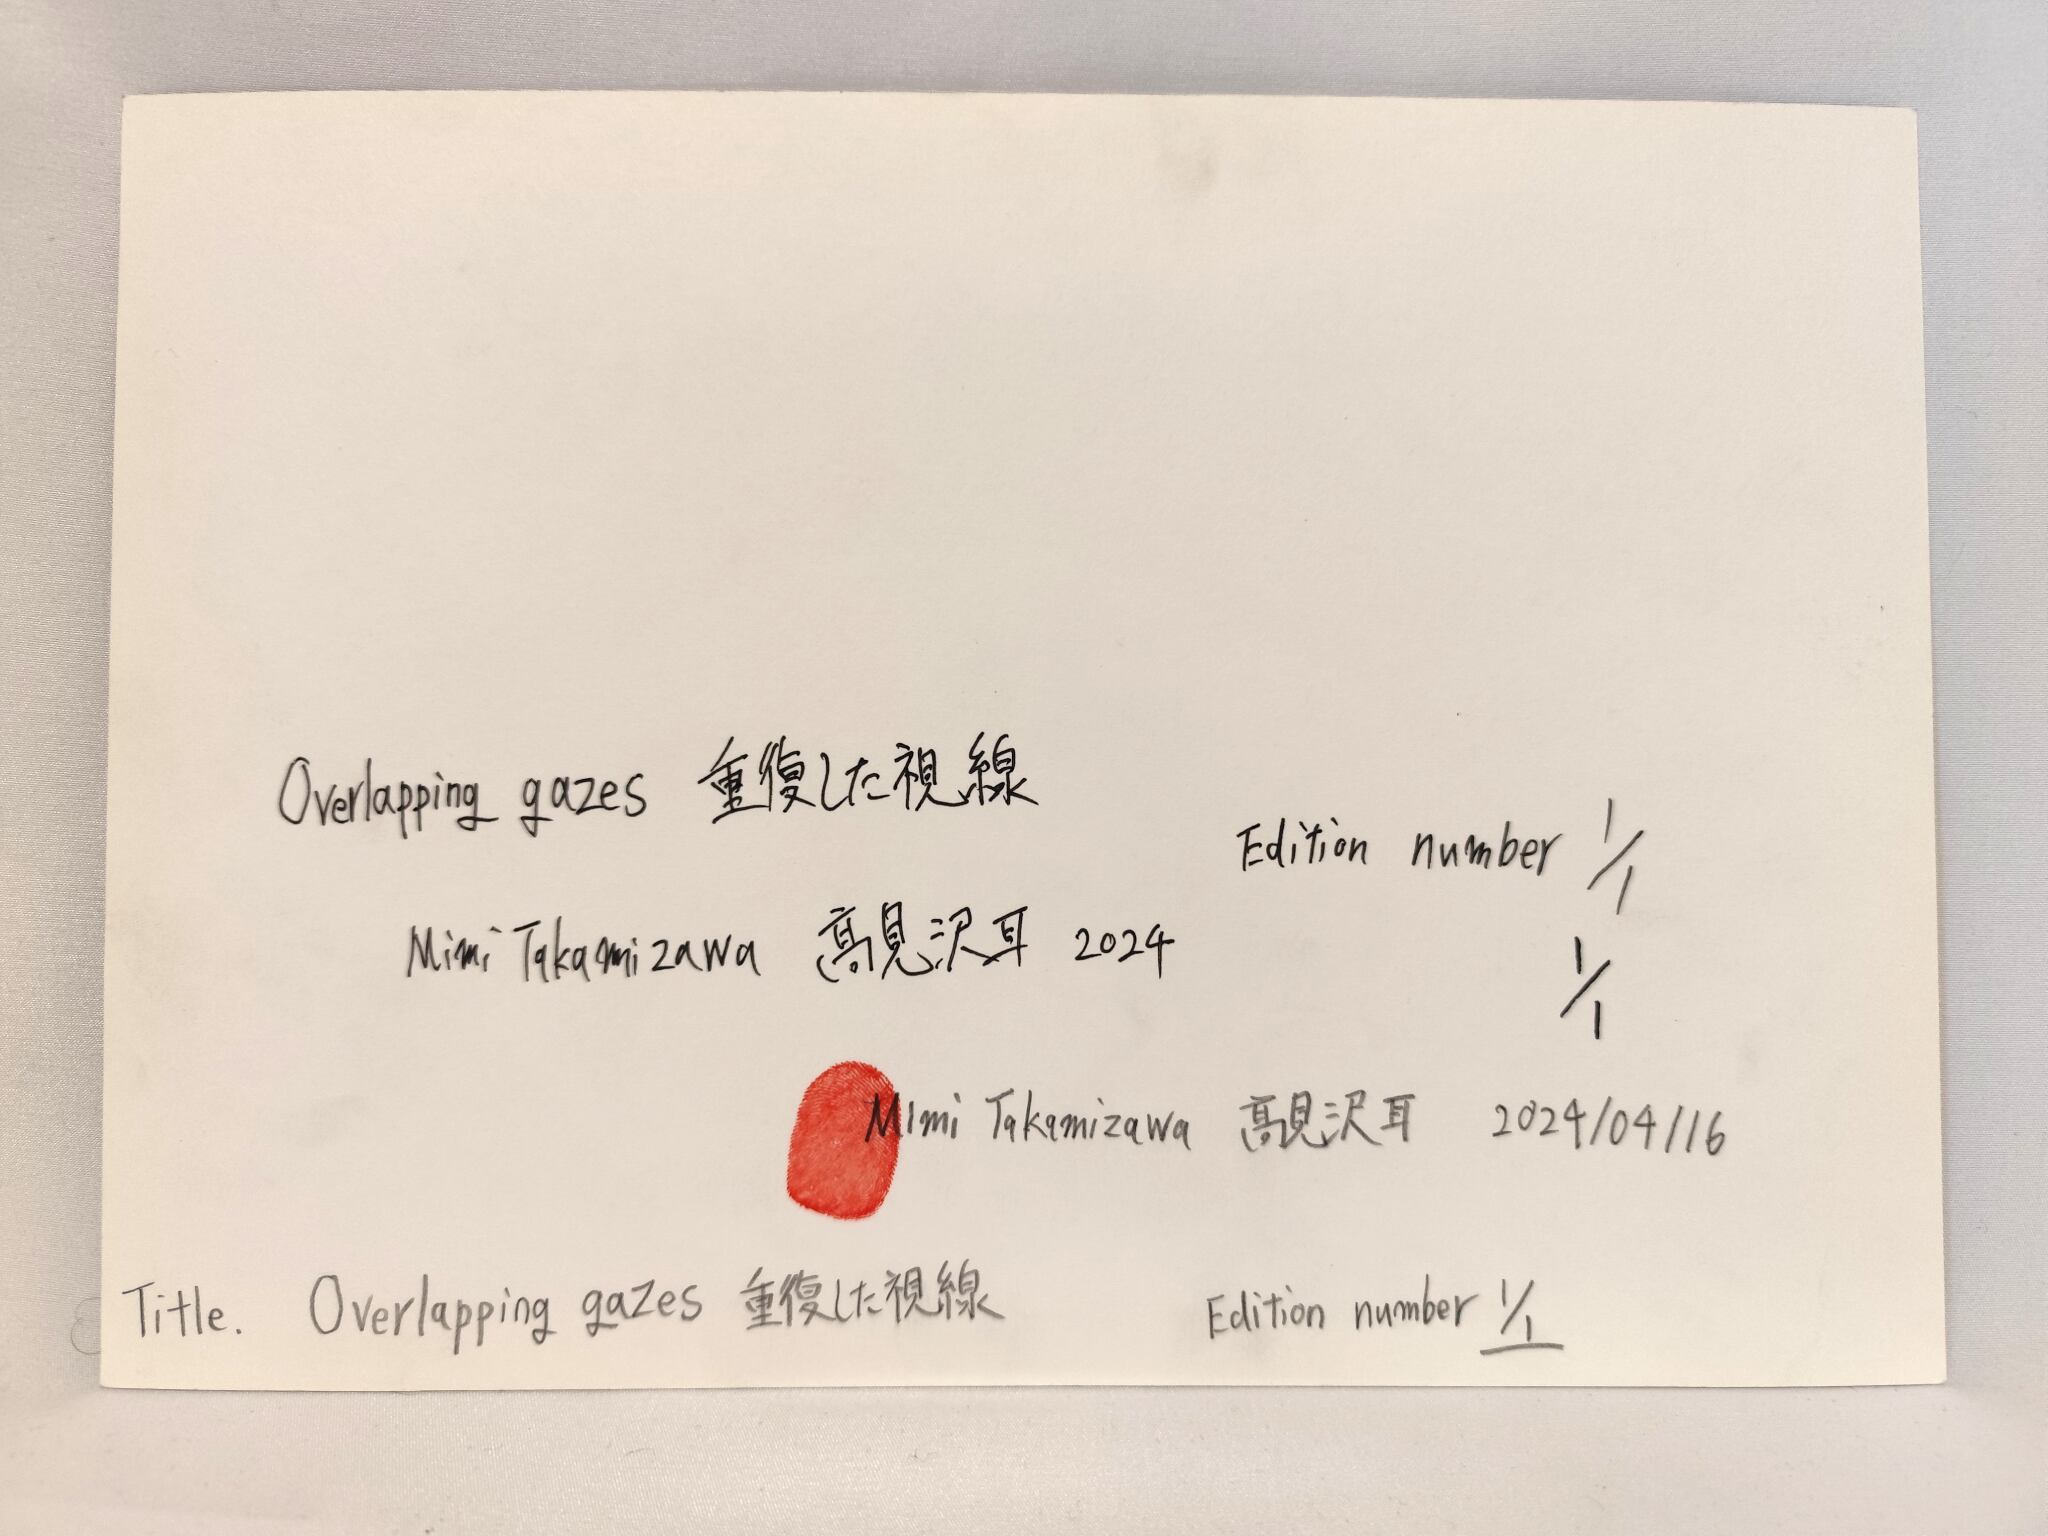 Overlapping gazes 重復した視線
Edition number 1/1
Mimi Takamizawa 高見沢耳 2024
1/1
Mimi Takamizawa 高見沢耳 2024/04/16
Title. Overlapping gazes 重復した視線
Edition number 1/1